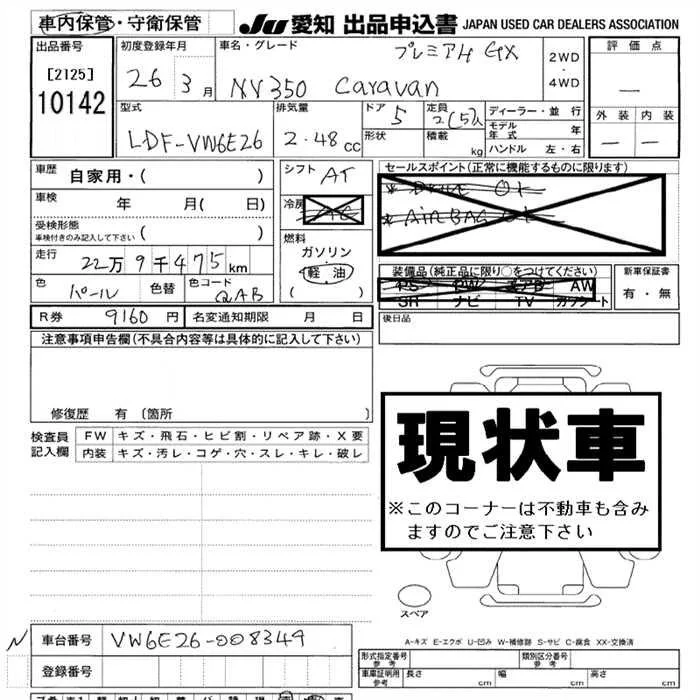 車内保管・守衛保管
JU 愛知 出品申込書 JAPAN USED CAR DEALERS ASSOCIATION
出品番号 [2125] 10142
初度登録年月 26年 3月
車名・グレード プレミアム GX
NV350 Caravan
2WD・4WD
評価点 —
外装 — 内装 —
型式 LDF-VW6E26
排気量 2.48cc
ドア 5
形状
定員 2(5)人
積載 kg
ディーラー・並行
モデル年式 年
ハンドル 左・右
車歴 自家用・( )
車検 年 月( 日)
受検形態 車検付きのみ記入して下さい ( )
走行 22万9千475km
色 パール 色替 色コード QAB
シフト AT
冷房 AC
燃料 ガソリン 軽油 ( )
セールスポイント(正常に機能するものに限ります)
* DRIVE OK
* AIRBAG OK
装備品(純正品に限り○をつけてください)
PS PW エアB AW
SR ナビ TV カワシート
新車保証書 有・無
R券 9160円 名変通知期限 月 日
後日品
注意事項申告欄(不具合内容等は具体的に記入して下さい)
修復歴 有 [箇所 ]
現状車
※このコーナーは不動車も含み
ますのでご注意下さい
検査員記入欄
FW キズ・飛石・ヒビ割・リペア跡・X要
内装 キズ・汚レ・コゲ・穴・スレ・キレ・破レ
スペア
N 車台番号 VW6E26-008349
登録番号
A-キズ E-エクボ U-凹み W-補修跡 S-サビ C-腐食 XX-交換済
形式指定番号 参考 類別区分番号 参考
車庫証明用 参考 長さ cm 幅 cm 高さ cm